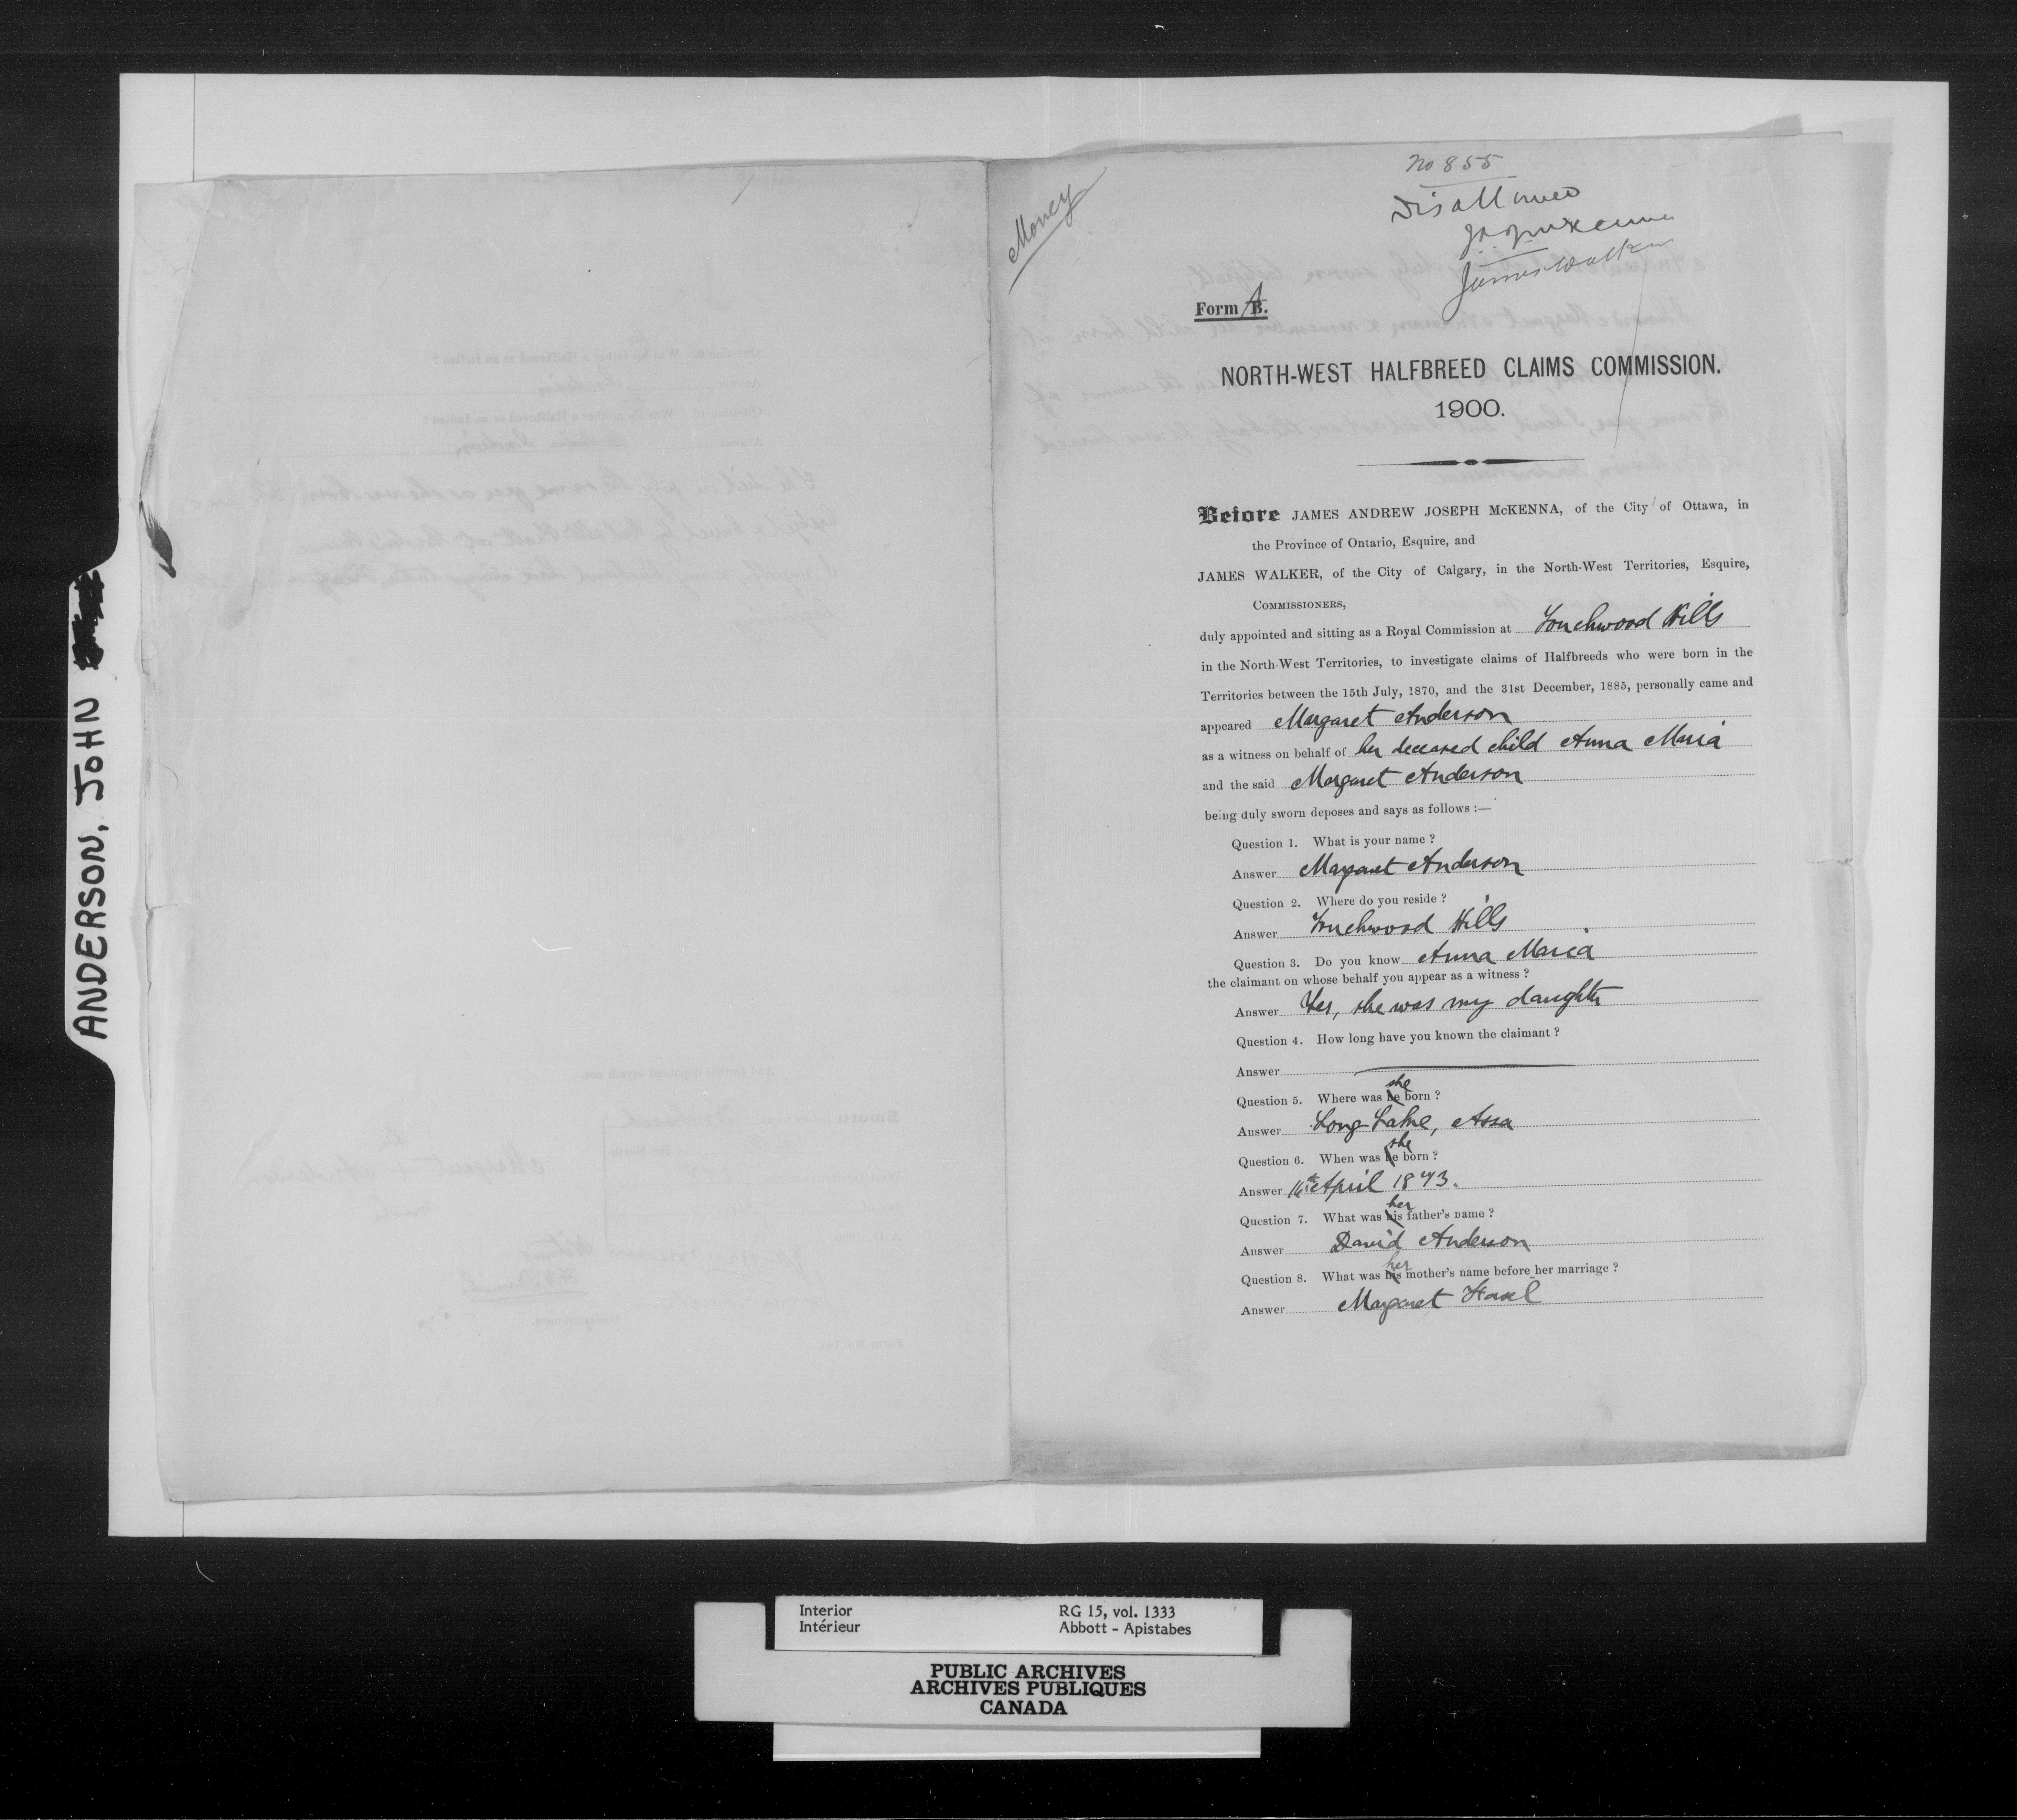 ANDERSON, JOHN
Money
No 855
Disallowed
J.A.J. McKenna
James Walker
Form A B.
NORTH-WEST HALFBREED CLAIMS COMMISSION.
1900.
Before JAMES ANDREW JOSEPH McKENNA, of the City of Ottawa, in
the Province of Ontario, Esquire, and
JAMES WALKER, of the City of Calgary, in the North-West Territories, Esquire,
COMMISSIONERS,
duly appointed and sitting as a Royal Commission at Touchwood Hills
in the North-West Territories, to investigate claims of Halfbreeds who were born in the
Territories between the 15th July, 1870, and the 31st December, 1885, personally came and
appeared Margaret Anderson
as a witness on behalf of her deceased child Anna Maria
and the said Margaret Anderson
being duly sworn deposes and says as follows :—
Question 1. What is your name ?
Answer Margaret Anderson
Question 2. Where do you reside ?
Answer Touchwood Hills
Question 3. Do you know Anna Maria
the claimant on whose behalf you appear as a witness ?
Answer Yes, she was my daughter
Question 4. How long have you known the claimant ?
Answer
Question 5. Where was he she born ?
Answer Long Lake, Assa
Question 6. When was he she born ?
Answer 16th April 1873.
Question 7. What was his her father's name ?
Answer David Anderson
Question 8. What was his her mother's name before her marriage ?
Answer Margaret
Interior RG 15, vol. 1333
Intérieur Abbott - Apistabes
PUBLIC ARCHIVES
ARCHIVES PUBLIQUES
CANADA